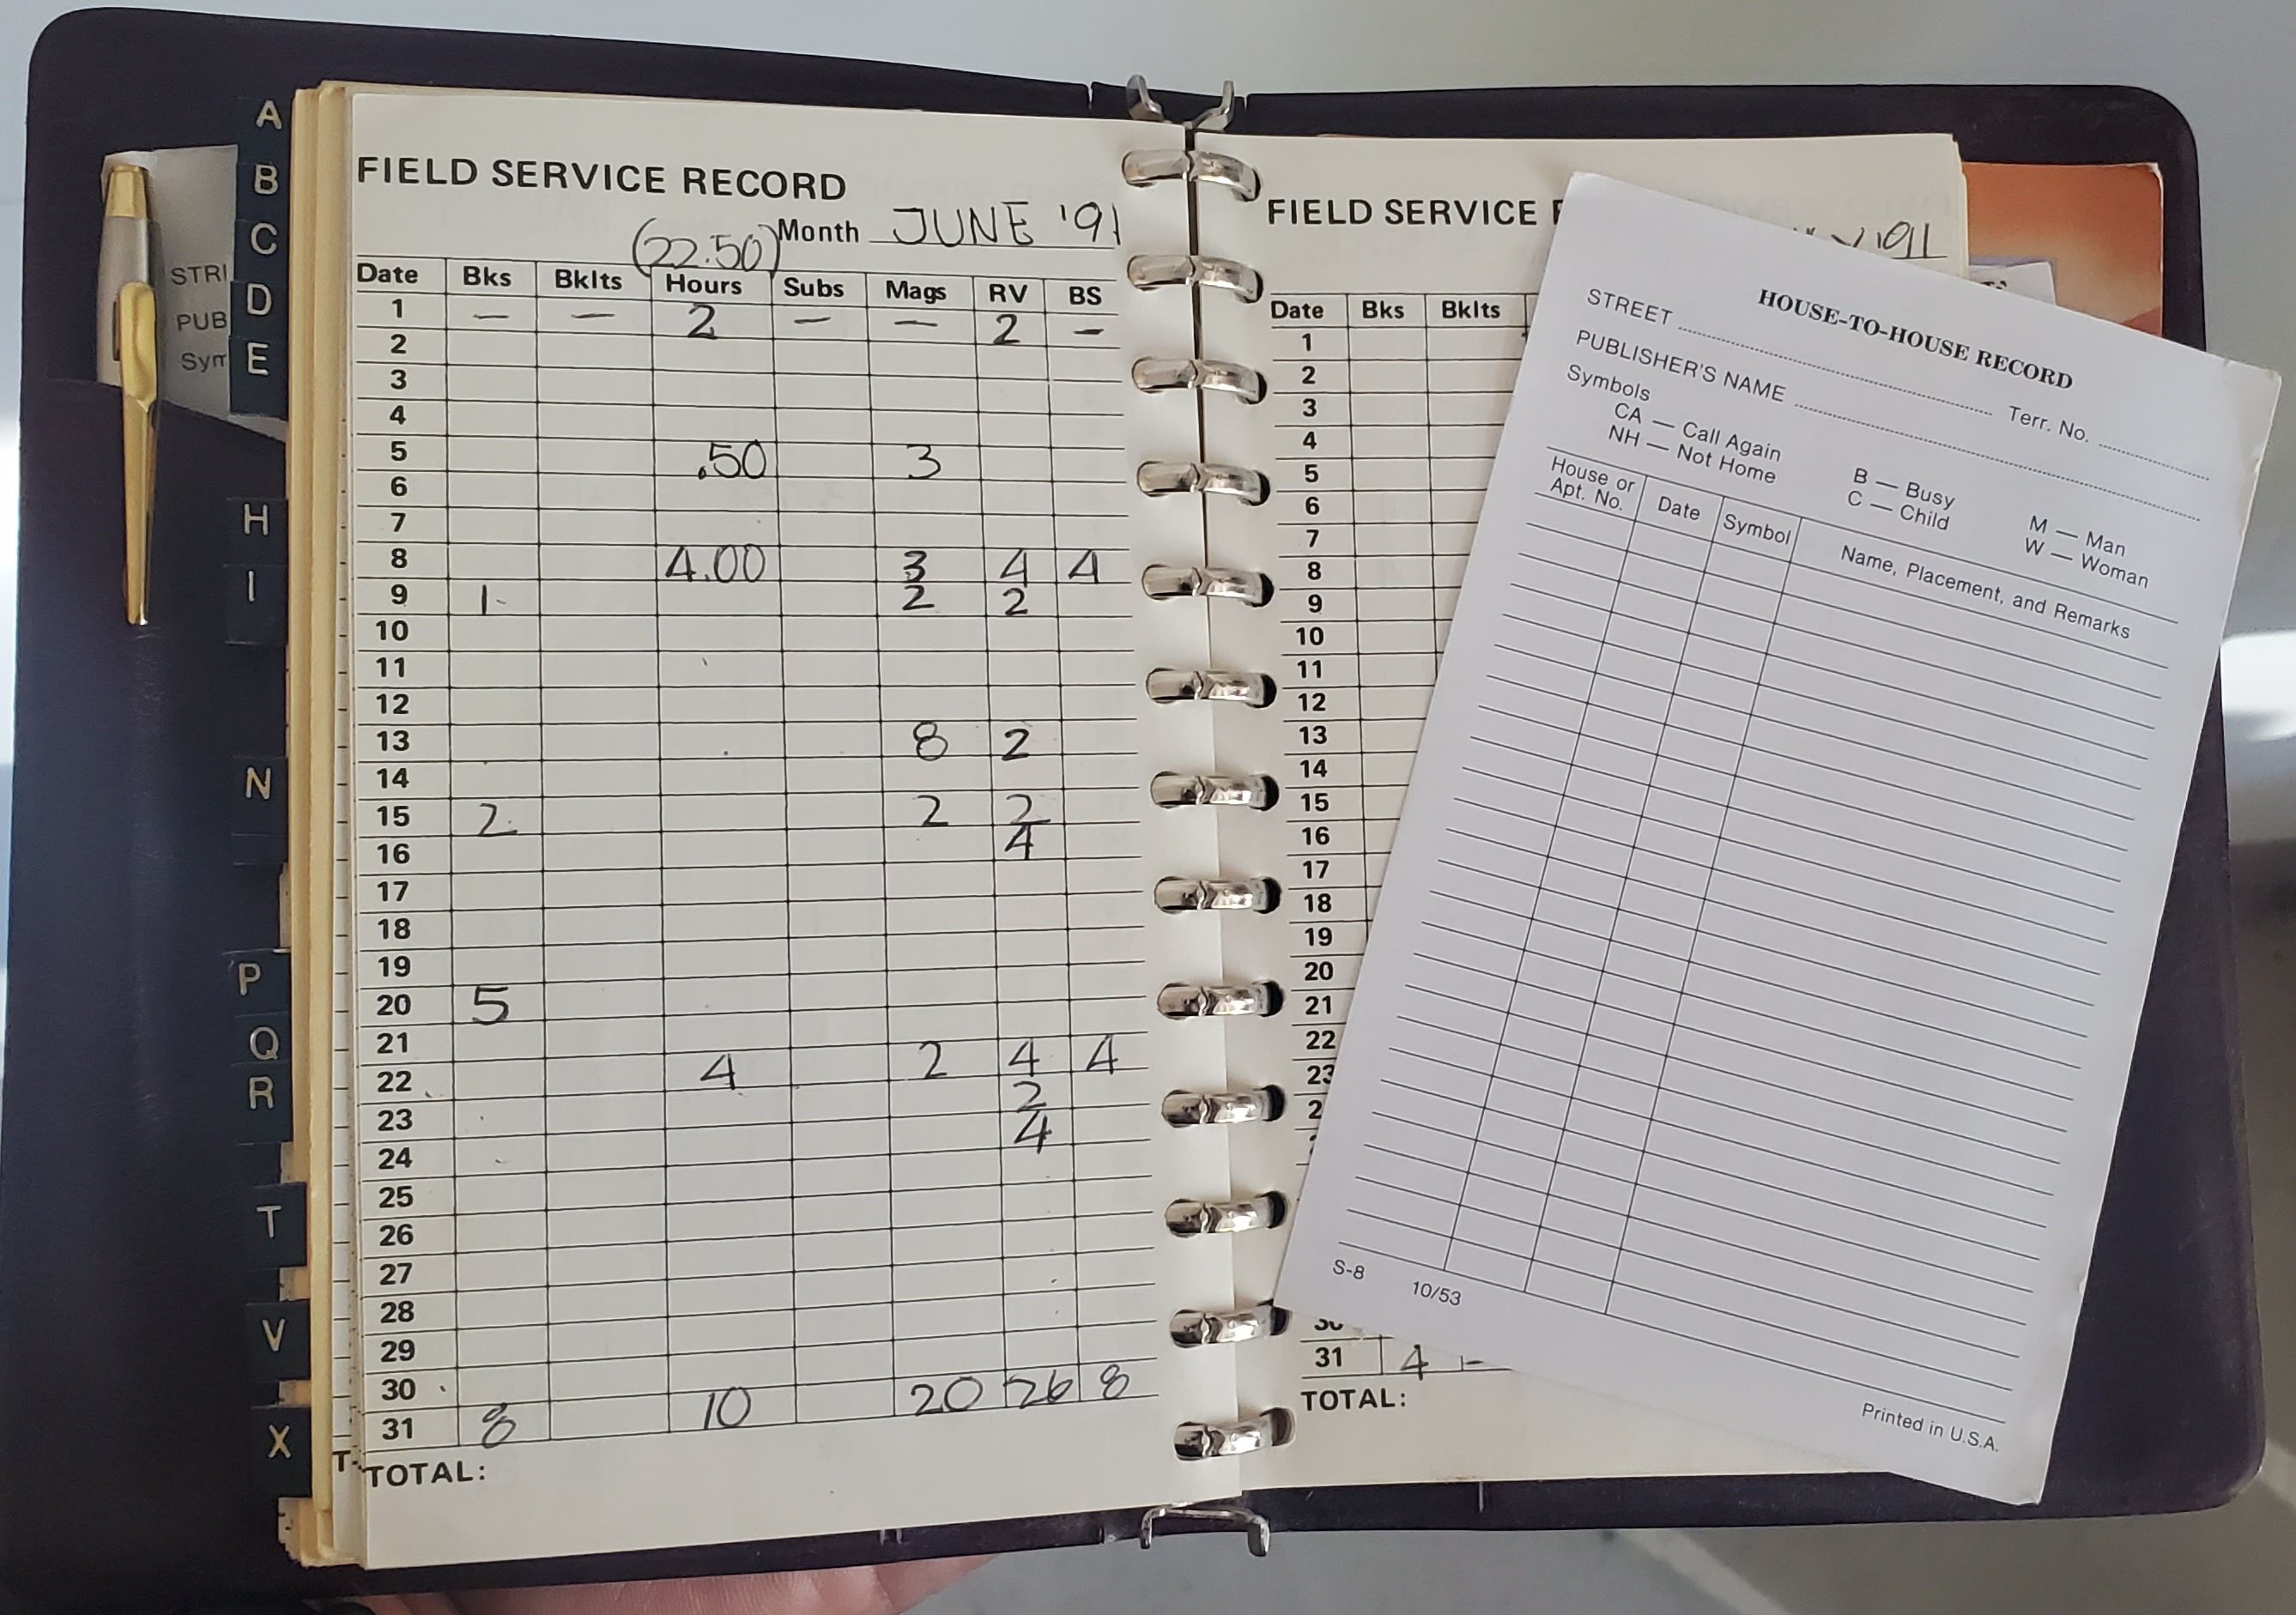 A
B
C
D
E
H
I
N
P
Q
R
T
V
X
STRI
PUB
Sym
FIELD SERVICE RECORD
(22.50) Month JUNE '91
Date Bks Bklts Hours Subs Mags RV BS
1 — — 2 — — 2 —
2
3
4
5 .50 3
6
7
8 4.00 3 4 4
9 1 2 2
10
11
12
13 8 2
14
15 2 2 2
16 4
17
18
19
20 5
21
22 4 2 4 4
23 2
24 4
25
26
27
28
29
30
31 8 10 20 26 8
T TOTAL:
FIELD SERVICE
'91
Date Bks Bklts
1
2
3
4
5
6
7
8
9
10
11
12
13
14
15
16
17
18
19
20
21
22
23
2
30
31 4 —
TOTAL:
HOUSE-TO-HOUSE RECORD
STREET Terr. No.
PUBLISHER'S NAME
Symbols
CA — Call Again B — Busy M — Man
NH — Not Home C — Child W — Woman
House or Apt. No. Date Symbol Name, Placement, and Remarks
S-8 10/53 Printed in U.S.A.